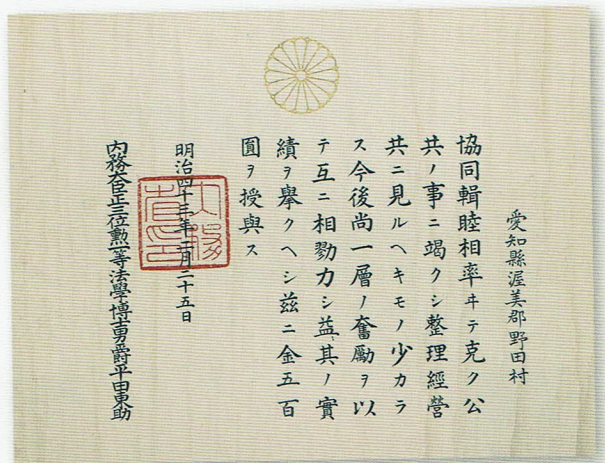 愛知縣渥美郡野田村
協同輯睦相率ヰテ克ク公
共ノ事ニ竭クシ整理經營
共ニ見ルヘキモノ少カラ
ス今後尚一層ノ奮勵ヲ以
テ互ニ相勠力シ益〻其ノ實
績ヲ擧クヘシ茲ニ金五百
圓ヲ授與ス
明治四十三年二月二十五日
内務大臣正三位勳一等法學博士男爵平田東助